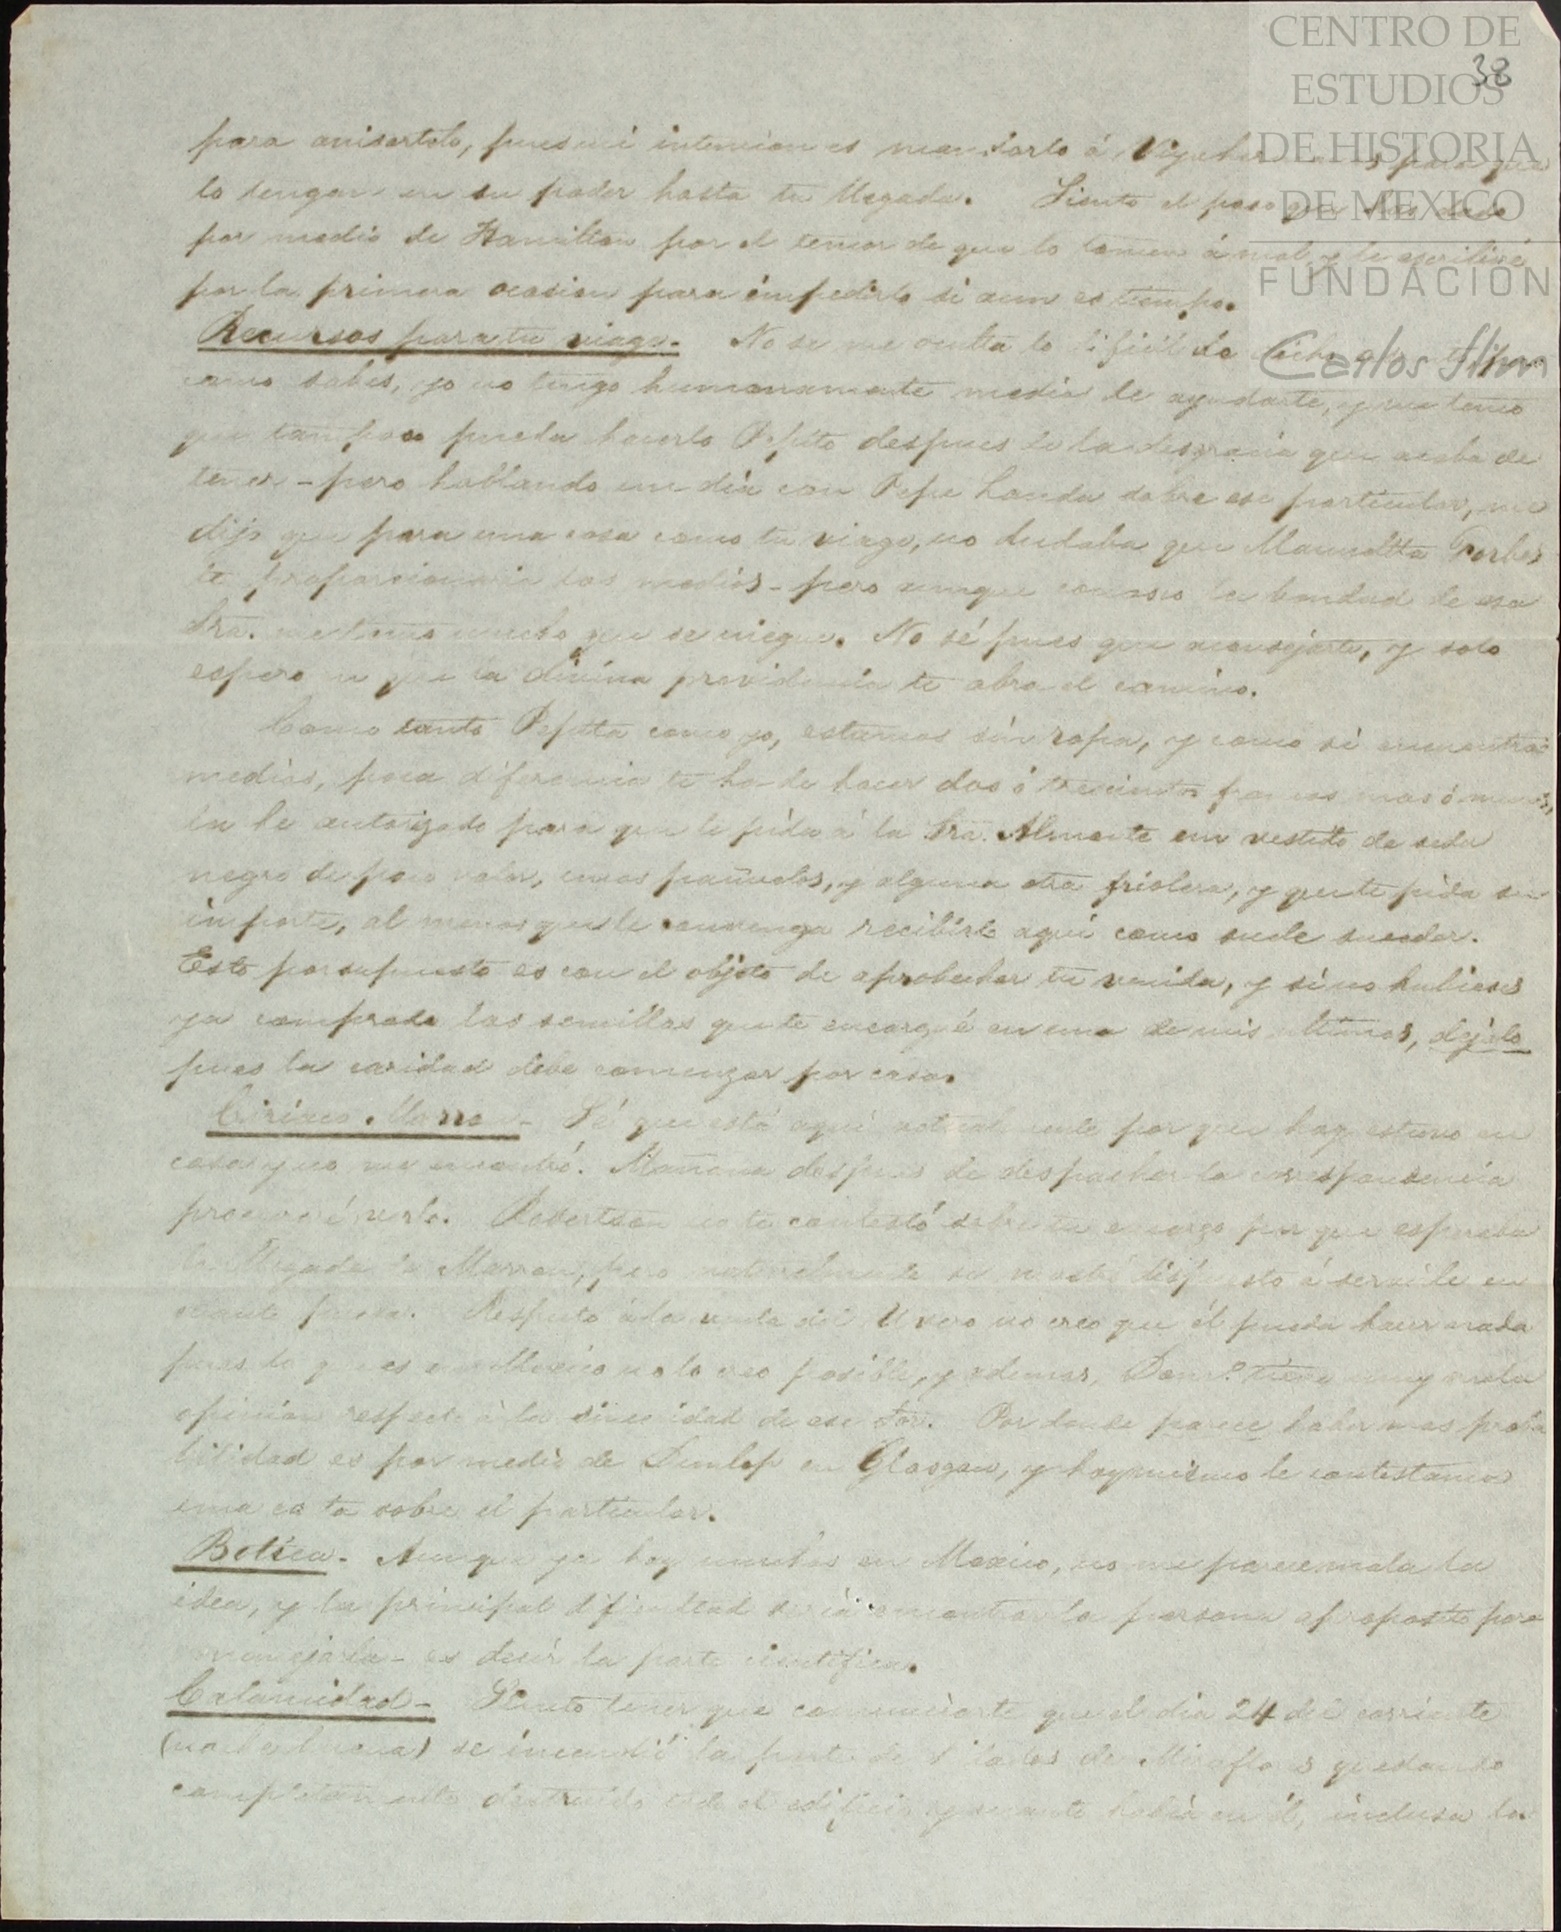 CENTRO DE
ESTUDIOS
DE HISTORIA
DE MEXICO
FUNDACIÓN
Carlos Slim
38
para avisartelo, pues mi intencion es mandarlo á para que
lo tengan en su poder hasta tu llegada. Siento el paso que has dado
por medio de Hamilton por el temor de que lo tomen á mal, y le escribiré
por la primera ocasion para impedirlo si aun es tiempo.
Recursos para tu viage. No se me oculta lo dificil de
como sabes, yo no tengo humanamente medio de ayudarte, y me temo
que tampoco pueda hacerlo Pepito despues de la desgracia que acaba de
tener - pero hablando un dia con Pepe Landa sobre ese particular, me
dijo que para una cosa como tu viage, no dudaba que Manuelita Forbes
te proporcionaria los medios - pero aunque conosco la bondad de esa
Sra. me temo mucho que se niegue. No sé pues que aconsejarte, y solo
espero en que la divina providencia te abra el camino.
Como tanto Pepita como yo, estamos sin ropa, y como si encontras
medios, poca diferencia te ha de hacer dos ó trecientos francos mas ó menos,
la he autorizado para que le pida á la Sra. Almonte un vestido de seda
negro de poco valor, unos pañuelos, y alguna otra friolera, y que te pida su
importe, al menos que le convenga recibirlo aquí como suele suceder.
Esto por supuesto es con el objeto de aprobechar tu venida, y si no hubieses
ya comprado las semillas que te encargué en una de mis ultimas, déjalo
pues la caridad debe comenzar por casa.
Ciriaco Marron - Sé que está aquí actualmente por que hoy estuvo en
casa y no me encontró. Mañana despues de despachar la correspondencia
procuraré verlo. Robertson no te contestó sobre tu encargo por que esperaba
la llegada de Marron, pero naturalmente se mostró dispuesto á servirle en
cuanto pueda. Respecto á la venta del no creo que él pueda hacer nada
pues lo que es en Mexico no lo creo posible, y ademas, tiene muy mala
opinion respecto á la sinceridad de ese Sor. Por donde parece haber mas proba
bilidad es por medio de Dunlop en Glasgow, y hoy mismo le contestamos
una carta sobre el particular.
Botica. Aunque ya hay muchas en Mexico, no me parece mala la
idea, y la principal dificultad seria encontrar la persona aproposito para
manejarla - es decir la parte cientifica.
Calamidad - Siento tener que comunicarte que el dia 24 del corriente
(noche buena) se incendió la parte de hilados de Miraflores quedando
completamente destruido todo el edificio y cuanto habia en él, inclusa la